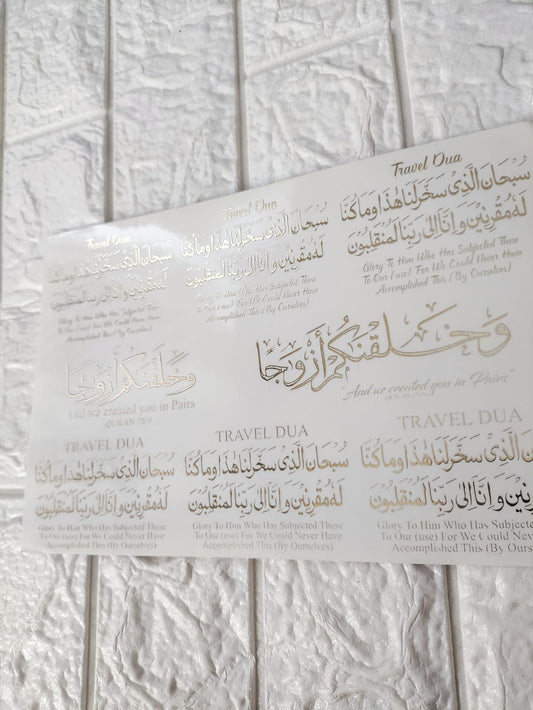 Travel Dua
سُبْحَانَ الَّذِي سَخَّرَ لَنَا هَٰذَا وَمَا كُنَّا
لَهُ مُقْرِنِينَ وَإِنَّا إِلَىٰ رَبِّنَا لَمُنْقَلِبُونَ
Glory To Him Who Has Subjected These
To Our (use) For We Could Never Have
Accomplished This (By Ourselves)
Travel Dua
سُبْحَانَ الَّذِي سَخَّرَ لَنَا هَٰذَا وَمَا كُنَّا
لَهُ مُقْرِنِينَ وَإِنَّا إِلَىٰ رَبِّنَا لَمُنْقَلِبُونَ
Glory To Him Who Has Subjected These
To Our (use) For We Could Never Have
Accomplished This (By Ourselves)
Travel Dua
سُبْحَانَ الَّذِي سَخَّرَ لَنَا هَٰذَا وَمَا كُنَّا
لَهُ مُقْرِنِينَ وَإِنَّا إِلَىٰ رَبِّنَا لَمُنْقَلِبُونَ
Glory To Him Who Has Subjected These
To Our (use) For We Could Never Have
Accomplished This (By Ourselves)
وَخَلَقْنَكُمْ أَزْوَجًا
And we created you in Pairs
QURAN 78:7
وَخَلَقْنَكُمْ أَزْوَجًا
"And we created you in Pairs"
TRAVEL DUA
سُبْحَانَ الَّذِي سَخَّرَ لَنَا هَٰذَا وَمَا كُنَّا
لَهُ مُقْرِنِينَ وَإِنَّا إِلَىٰ رَبِّنَا لَمُنْقَلِبُونَ
Glory To Him Who Has Subjected These
To Our (use) For We Could Never Have
Accomplished This (By Ourselves)
TRAVEL DUA
سُبْحَانَ الَّذِي سَخَّرَ لَنَا هَٰذَا وَمَا كُنَّا
لَهُ مُقْرِنِينَ وَإِنَّا إِلَىٰ رَبِّنَا لَمُنْقَلِبُونَ
Glory To Him Who Has Subjected These
To Our (use) For We Could Never Have
Accomplished This (By Ourselves)
TRAVEL DUA
الَّذِي سَخَّرَ لَنَا هَٰذَا وَمَا كُنَّا
وَإِنَّا إِلَىٰ رَبِّنَا لَمُنْقَلِبُونَ
Glory To Him Who Has Subjected
To Our (use) For We Could Never
Accomplished This (By